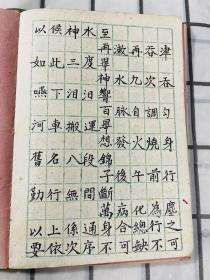 以候神水至再漱再吞津
如此三度畢神水九次吞
嚥下汩汩響百脉自調勻
河車搬運畢想發火燒身
舊名八段錦子後午前行
勤行無間斷萬病化為塵
以上係通身合總行之
要依次序不可缺不可